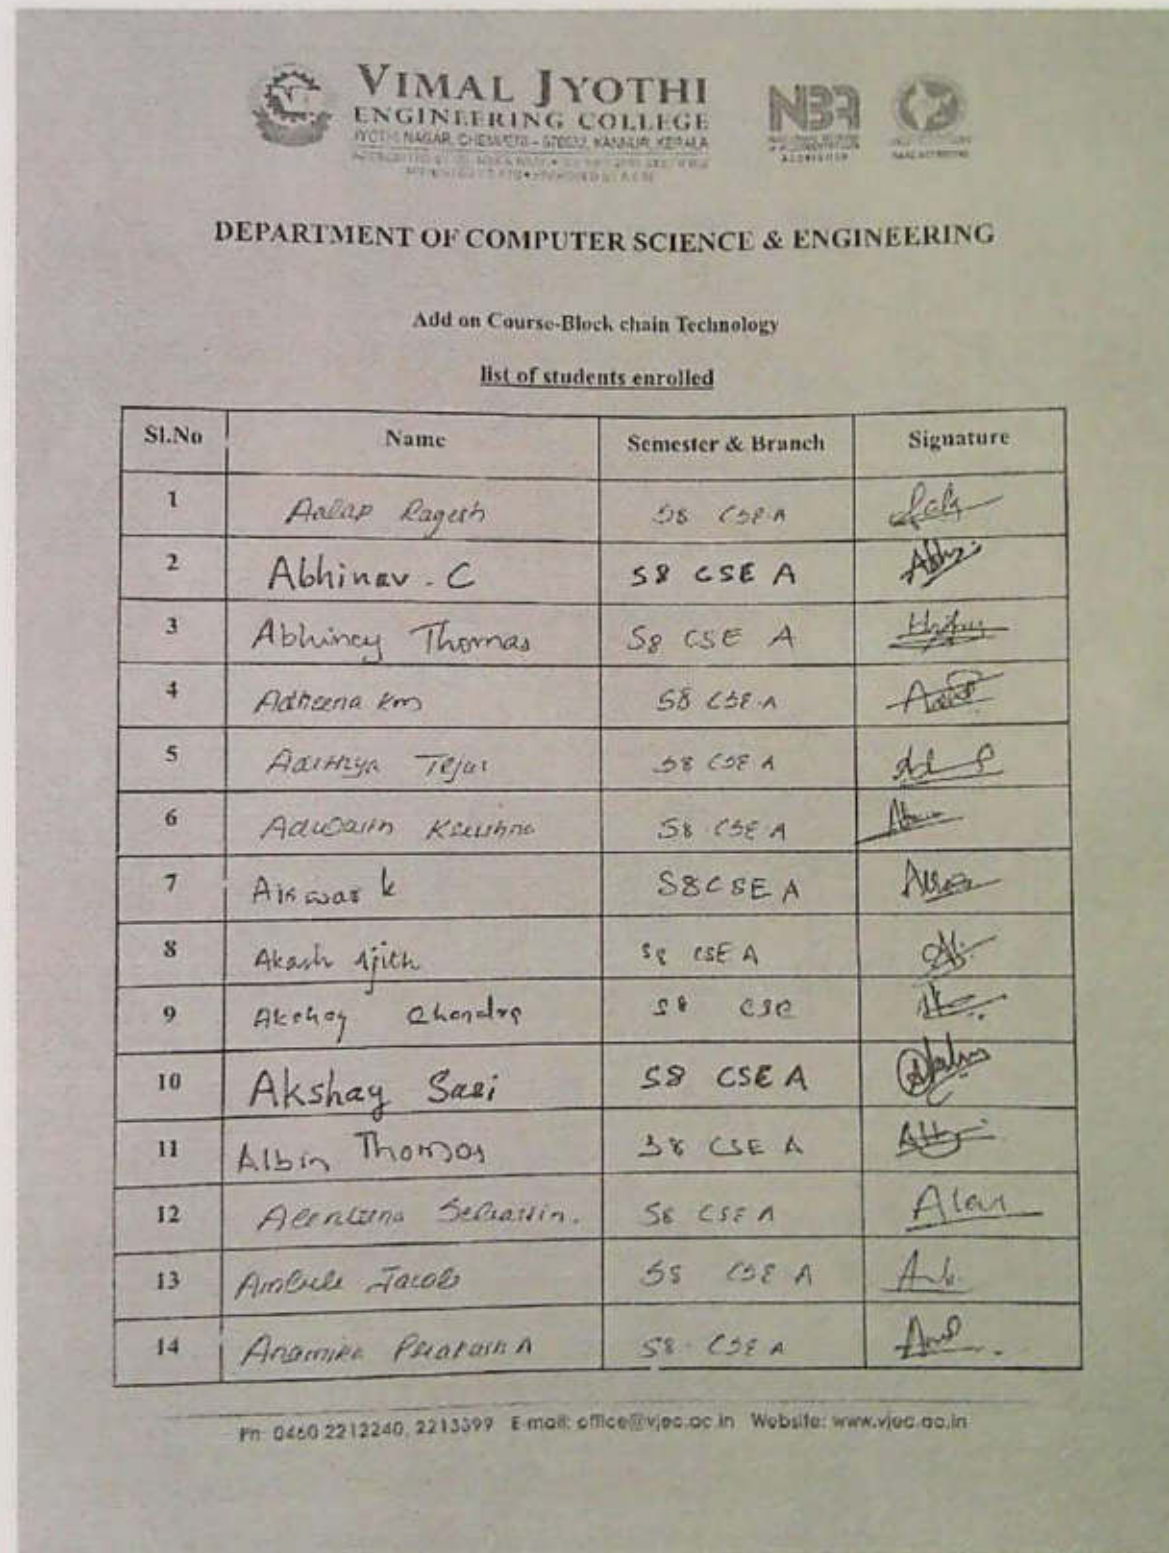 VIMAL JYOTHI
ENGINEERING COLLEGE
JYOTHI NAGAR, CHEMPERI - 670632, KANNUR, KERALA
NBA
DEPARTMENT OF COMPUTER SCIENCE & ENGINEERING
Add on Course-Block chain Technology
list of students enrolled
Sl.No Name Semester & Branch Signature
1 Aalap Ragesh S8 CSE A
2 Abhinav . C S8 CSE A
3 Abhinay Thomas S8 CSE A
4 Adheena Km S8 CSE A
5 Adithya Tejas S8 CSE A
6 Adwaith Krishna S8 CSE A
7 Aiswar k S8 CSE A
8 Akash Ajith S8 CSE A
9 Akshay Chandra S8 CSE
10 Akshay Sasi S8 CSE A
11 Albin Thomas S8 CSE A
12 S8 CSE A Alan
13 Jacob S8 CSE A
14 Anamika Prakash A S8 CSE A
Ph: 0460 2212240, 2213399 E-mail: office@vjec.ac.in Website: www.vjec.ac.in